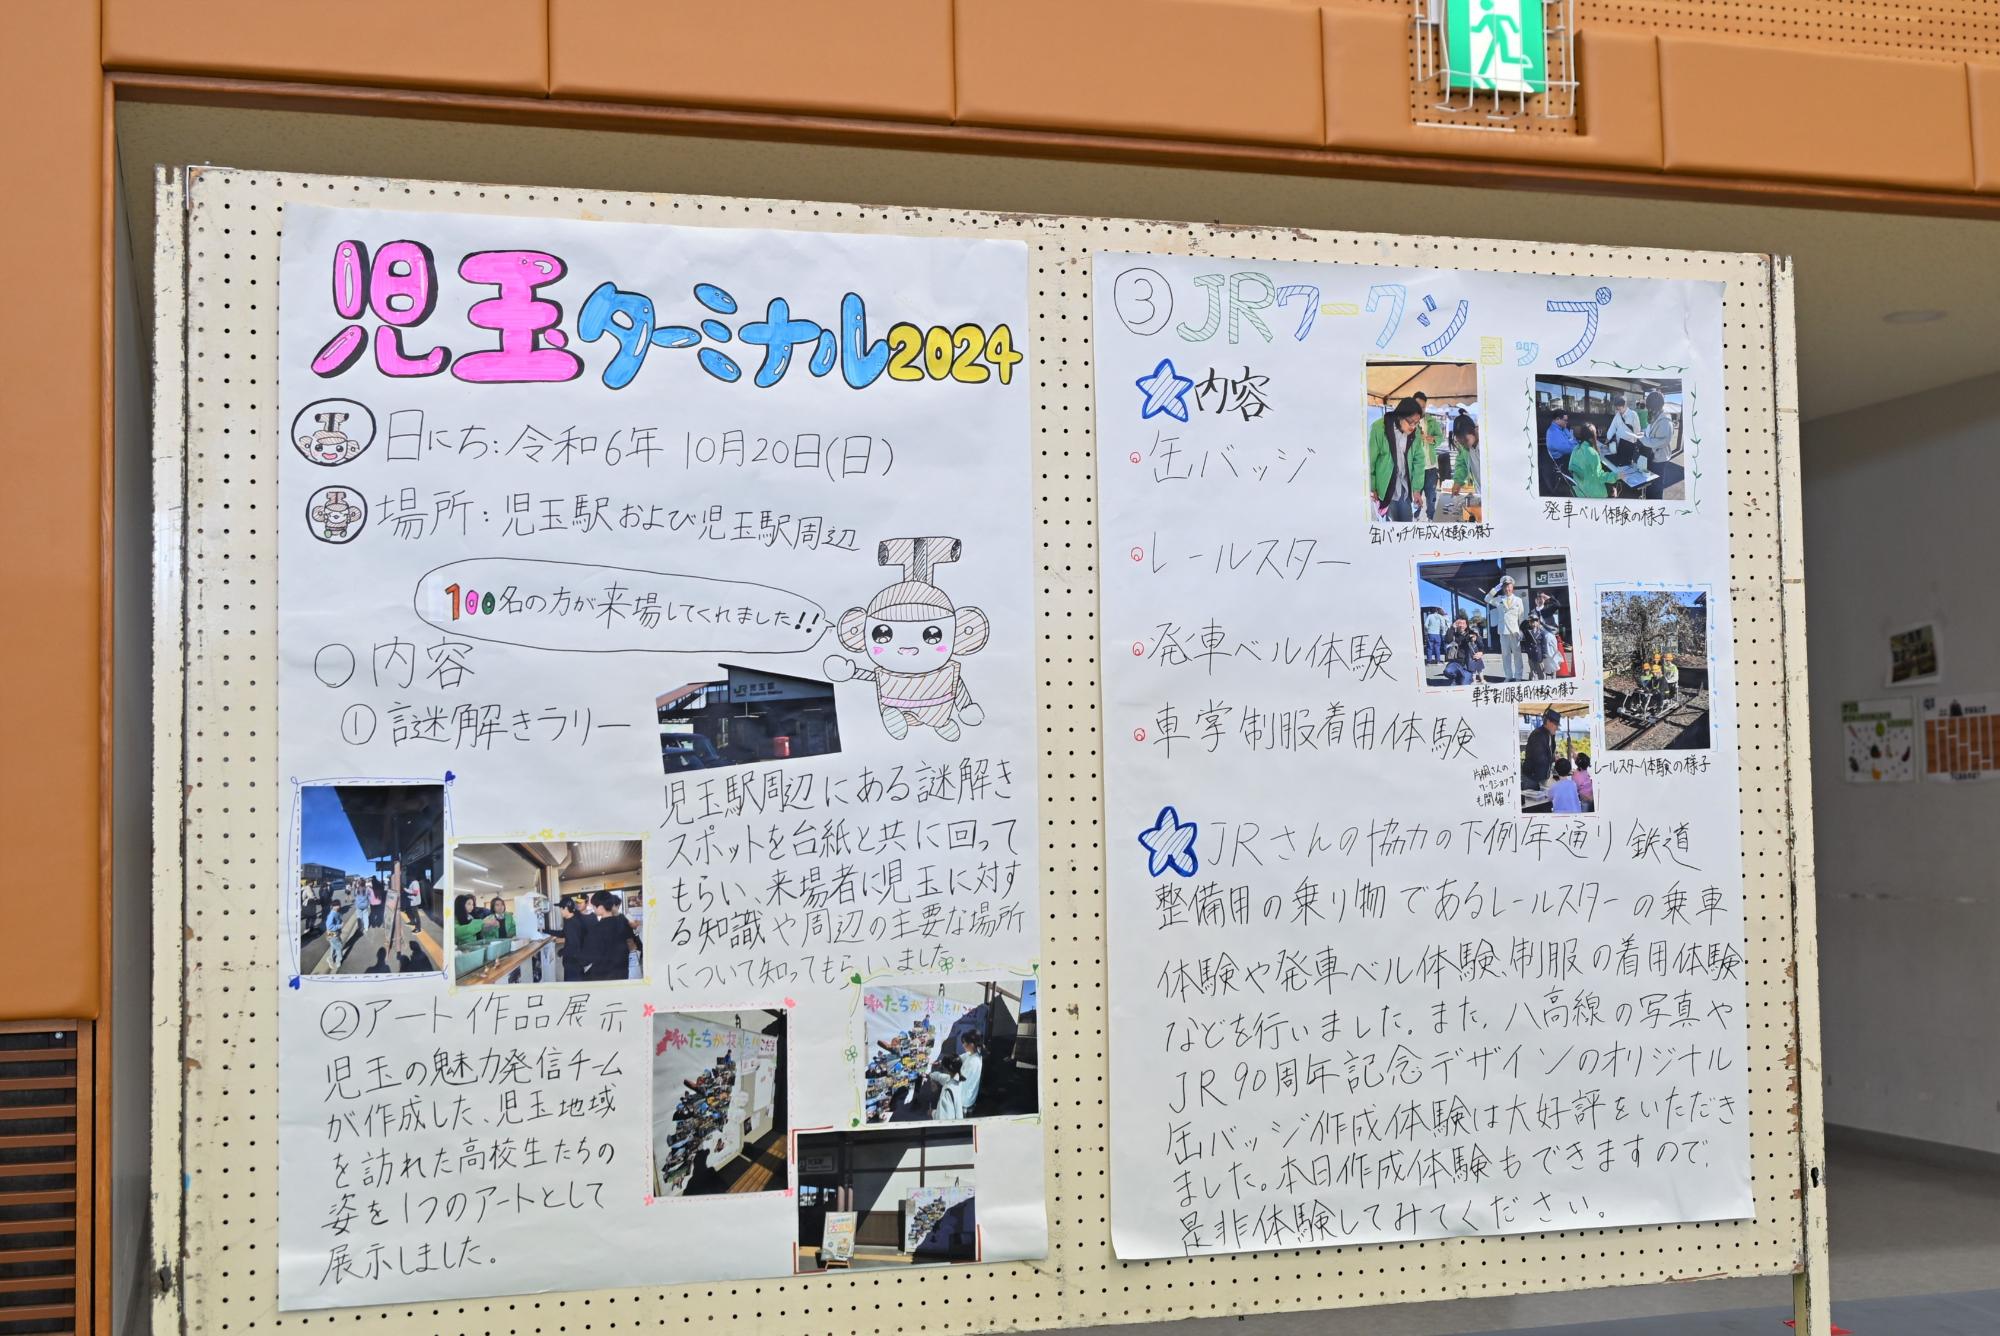 児玉ターミナル2024
日にち:令和6年 10月20日(日)
場所:児玉駅および児玉駅周辺
100名の方が来場してくれました!!
○内容
①謎解きラリー
児玉駅周辺にある謎解き
スポットを台紙と共に回って
もらい、来場者に児玉に対す
る知識や周辺の主要な場所
について知ってもらいました。
②アート作品展示
児玉の魅力発信チーム
が作成した、児玉地域
を訪れた高校生たちの
姿を1つのアートとして
展示しました。
③JRワークショップ
☆内容
缶バッジ
レールスター
発車ベル体験
車掌制服着用体験
缶バッチ作成体験の様子
発車ベル体験の様子
車掌制服着用体験の様子
レールスター体験の様子
ワークショップ
も開催!
☆JRさんの協力の下例年通り鉄道
整備用の乗り物であるレールスターの乗車
体験や発車ベル体験、制服の着用体験
などを行いました。また、八高線の写真や
JR90周年記念デザインのオリジナル
缶バッジ作成体験は大好評をいただき
ました。本日作成体験もできますので、
是非体験してみてください。